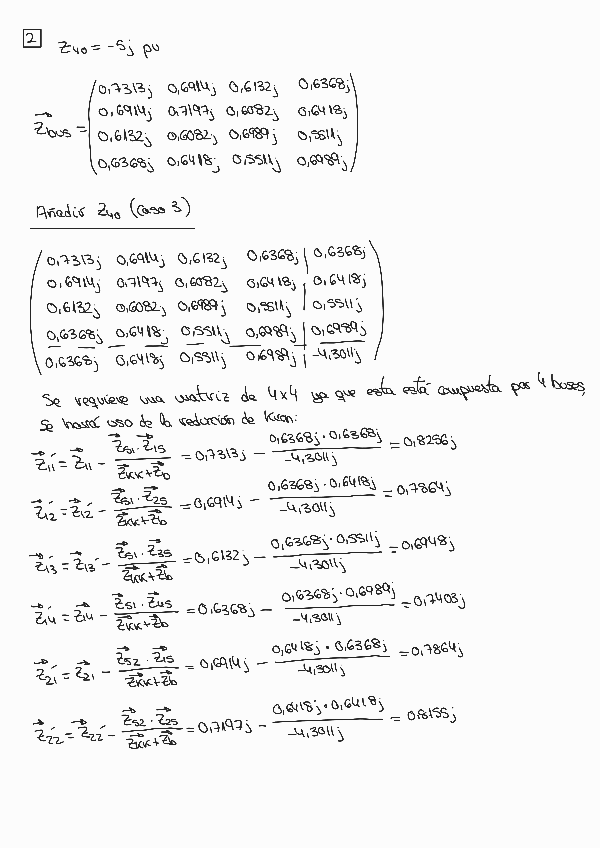 2 Z₄₀ = -5j pu
0,7313j 0,6914j 0,6132j 0,6368j
0,6914j 0,7197j 0,6082j 0,6418j
Zbus =
0,6132j 0,6082j 0,6989j 0,5511j
0,6368j 0,6418j 0,5511j 0,6989j
Añadir Z₄₀ (Caso 3)
0,7313j 0,6914j 0,6132j 0,6368j | 0,6368j
0,6914j 0,7197j 0,6082j 0,6418j | 0,6418j
0,6132j 0,6082j 0,6989j 0,5511j | 0,5511j
0,6368j 0,6418j 0,5511j 0,6989j | 0,6989j
0,6368j 0,6418j 0,5511j 0,6989j | -4,3011j
Se requiere una matriz de 4x4 ya que esta está compuesta por 4 buses,
se hará uso de la reducción de Kron:
Z₁₁´ = Z₁₁ - Z₅₁·Z₁₅ / Zkk+Zb = 0,7313j - 0,6368j · 0,6368j / -4,3011j = 0,8256j
Z₁₂´ = Z₁₂´ - Z₅₁·Z₂₅ / Zkk+Zb = 0,6914j - 0,6368j · 0,6418j / -4,3011j = 0,7864j
Z₁₃´ = Z₁₃´ - Z₅₁·Z₃₅ / Zkk+Zb = 0,6132j - 0,6368j · 0,5511j / -4,3011j = 0,6948j
Z₁₄´ = Z₁₄ - Z₅₁·Z₄₅ / Zkk+Zb = 0,6368j - 0,6368j · 0,6989j / -4,3011j = 0,7403j
Z₂₁´ = Z₂₁´ - Z₅₂·Z₁₅ / Zkk+Zb = 0,6914j - 0,6418j · 0,6368j / -4,3011j = 0,7864j
Z₂₂´ = Z₂₂´ - Z₅₂·Z₂₅ / Zkk+Zb = 0,7197j - 0,6418j · 0,6418j / -4,3011j = 0.8155j